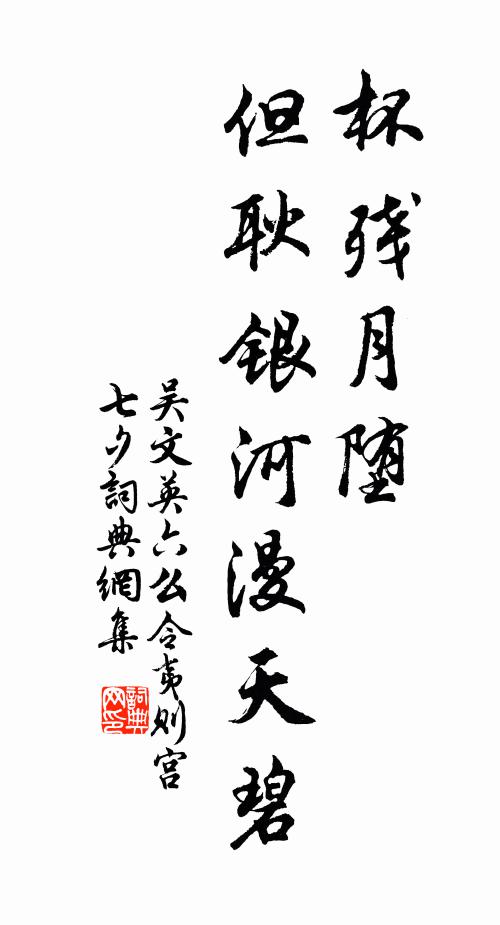 杯残月堕
但耿银河漫天碧
吴文英六么令夷则宫
七夕詞典網集
詞典
网印